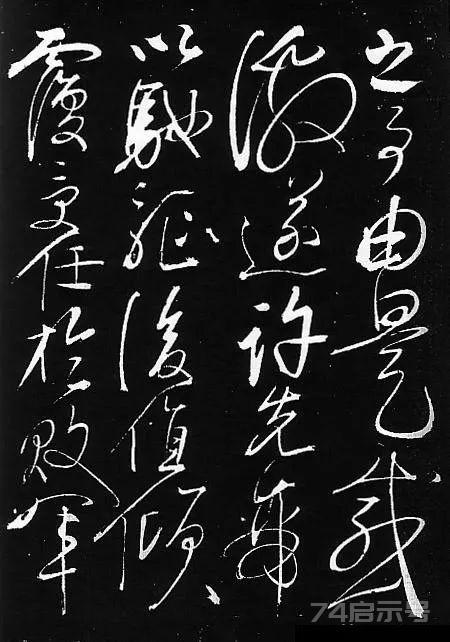 之事由是感
激遂许先帝
以驰驱后值倾
覆受任於败军
74启示号